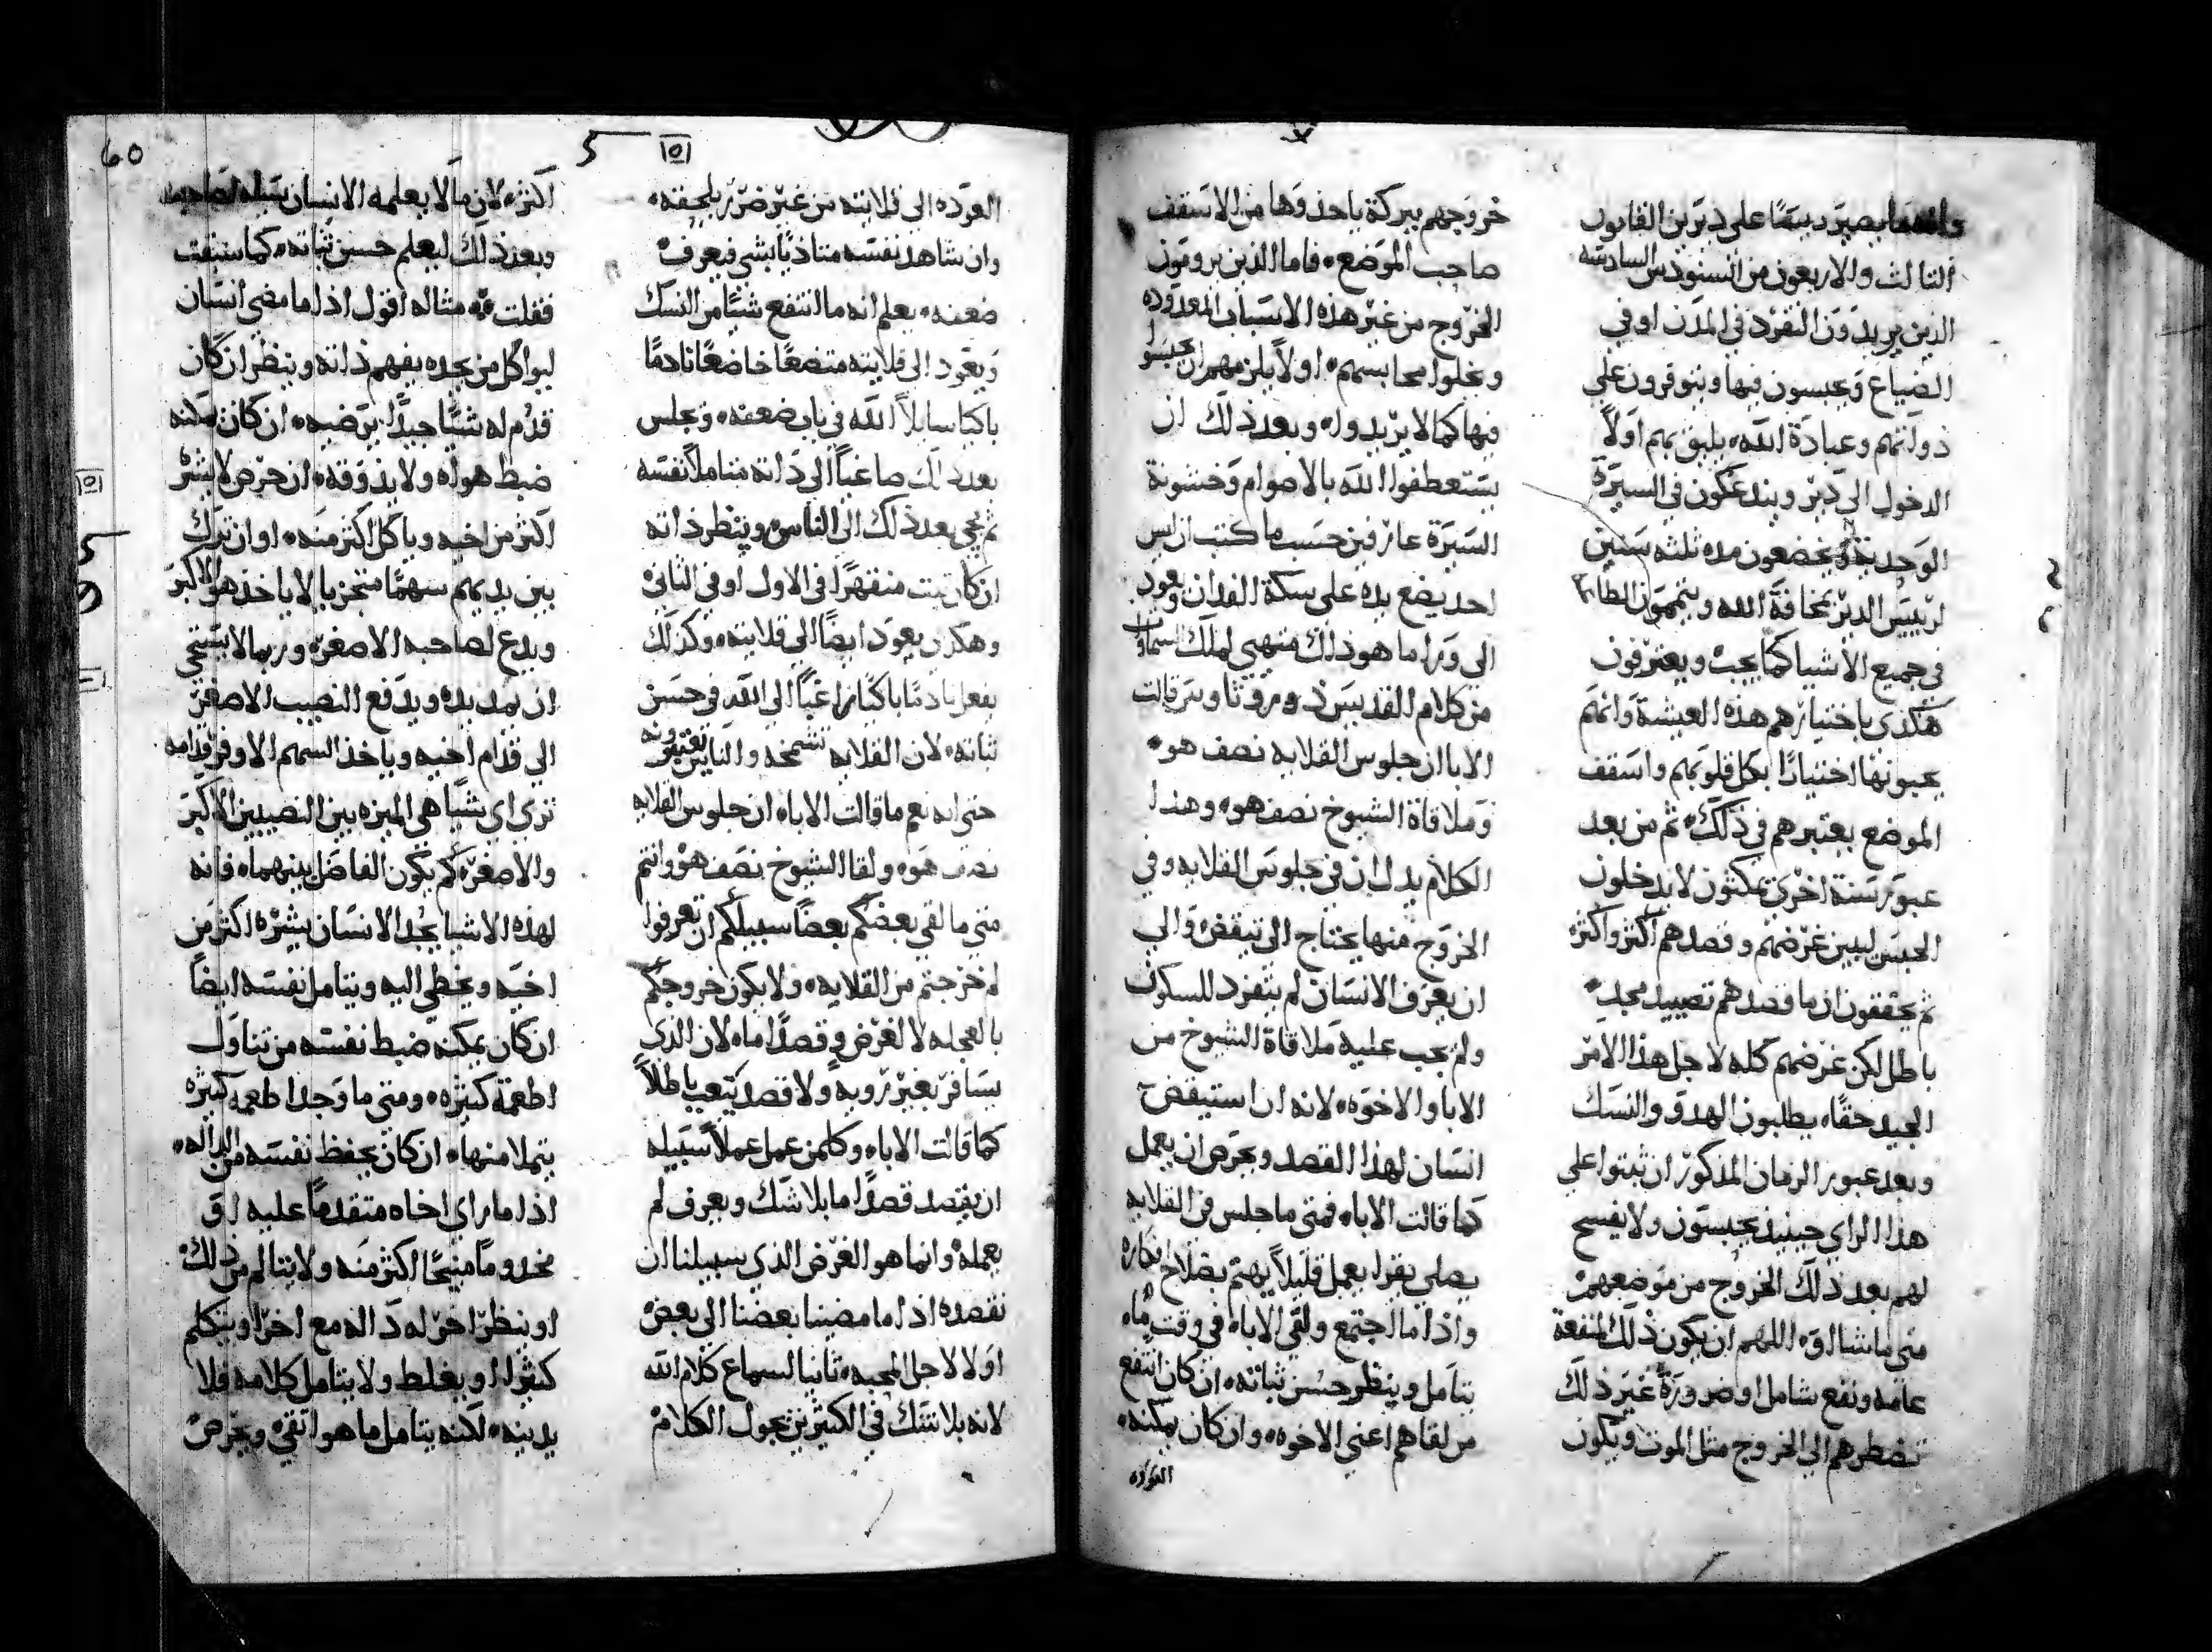 وانه ما يصير دبيقا على ديرين القانون
الثالث والاربعون من السنودس السادسه
الذين يريدون التفرد في المدن او في
الضياع ويحبسون فيها ويتوفرون على
ذواتهم وعبادة الله، يليق بهم اولاً
الدخول الى دير ويندعكون في السيرة
الوحديه ويخضعون مده ثلثه سنين
لرييس الدير بمخافة الله ويتممون الطاعه
في جميع الاشيا كما يجب ويعترفون
هكذى باختيارهم هذه العيشة وانهم
يحبونها اختيارًا بكل قلوبهم واسقف
الموضع يعتبرهم في ذلك، ثم من بعد
عبور سنة اخرى يمكثون لا يدخلون
الحبس ليبين غرضهم وقصدهم اكثر واكثر
ثم يحققون ان ما قصدهم تصييد مجد
باطل لكن غرضهم كله لاجل هذا الامر
الجيد حقًا، يطلبون الهدو والنسك
وبعد عبور الزمان المذكور ان ثبتوا على
هذا الراي حينيذ يحبسون ولا يفسح
لهم بعد ذلك الخروج من موضعهم
متى ما شااو، اللهم ان يكون ذلك لمنفعة
عامه ونفع شامل او ضرورة غير ذلك
تضطرهم الى الخروج مثل الموت ويكون
خروجهم ببركة ياخذوها من الاسقف
صاحب الموضع، فاما الذين يرومون
الخروج من غير هذه الاسباب المعدوده
ويخلوا محابسهم، اولاً يلزمهم ان يحبسوا
فيها كما لا يريدوا، وبعد ذلك ان
يستعطفوا الله بالاصوام وخشونة
السيرة عارفين حسب ما كتب ان ليس
احد يضع يده على سكة الفدان ويعود
الى ورا ما هو ذلك منهيي لملك السماوات
من كلام القديس دوروثاوس قالت
الابا ان جلوس القلايه نصف هو،
وملاقاة الشيوخ نصف هو، وهذا
الكلام يدل ان في جلوس القلايه وفي
الخروج منها يحتاج الى تيقض والى
ان يعرف الانسان لم يتفرد للسكون
ولم يجب عليه ملاقاة الشيوخ من
الابا والاخوه، لانه ان استيقض
انسان لهذا القصد ويحرص ان يعمل
كما قالت الاباء فمتى ما جلس في القلايه
يصلي يقرا يعمل قليلاً يهتم بصلاح افكاره
واذا ما اجتمع ولقي الاباء في وقت ما،
يتامل وينظر حسن ثباته، ان كان انتفع
من لقاهم اعني الاخوه، وان كان يمكنه،
العوده
العوده الى قلايته من غير ضرر يلحقه،
وان شاهد نفسه متاذيًا بشي فيعرف
ضعفه، يعلم انه ما انتفع شيًا من النسك
ويعود الى قلايته متضعًا خاضعًا نادمًا
باكيًا سايلاً الله في باب ضعفه، وجلس
بعد ذلك صاغياً الى ذاته متاملاً نفسه
ثم يجي بعد ذلك الى الناس وينظر ذاته
ان كان يثبت منقهرًا في الاول او في الثاني
وهكذى يعود ايضًا الى قلايته، وكذلك
يفعل نادمًا باكيًا راغبًا الى الله في حسن
ثباته، لان القلايه تشمخه والناس يعتبرونه
حتى انه نعم ما قالت الاباء ان جلوس القلايه
نصف هو، ولقا الشيوخ نصف هو، وانتم
متى ما لقي بعضكم بعضًا سبيلكم ان تعرفوا
لم خرجتم من القلايه، ولا يكون خروجكم
بالعجله لا لغرض وقصدًا ما، لان الذي
يسافر بغير رويه ولا قصد يتعب باطلاً
كما قالت الاباء وكلمن عمل عملاً سبيله
ان يقصد قصدًا ما بلا شك ويعرف لم
يعمله، وانما هو الغرض الذي سبيلنا ان
نقصده اذا ما مضينا بعضنا الى بعض
اولا لاجل المحبه، ثانيا لسماع كلام الله
لانه بلا شك في الكثيرين يجول الكلام
60
5
اكثر، لان ما لا يعلمه الانسان يسله لصاحبه
وبعد ذلك ليعلم حسن ثباته، كما سبقت
فقلت، مثاله اقول اذا ما مضى انسان
ليواكل من يجده يفهم ذاته وينظر ان كان
قدم له شيًا جيدًا يرضيه، ان كان يمكنه
ضبط هواه ولا يذوقه، ان حرص لا يشره
اكثر من اخيه وياكل اكثر منه، او ان ترك
بين يديهم سهمًا متجزيا لا ياخذ هو الاكبر
ويدع لصاحبه الاصغر، وربما لا يستحي
ان يمد يده ويدفع النصيب الاصغر
الى قدام اخيه وياخذ السهم الاوفر قدامه
ترى اي شيًا هي الميزه بين النصيبين الاكبر
والاصغر، كم يكون الفاضل بينهما، فانه
لهذه الاشيا يجد الانسان يشره اكثر من
اخيه ويخطي اليه ويتامل نفسه ايضًا
ان كان يمكنه ضبط نفسه من تناول
اطعمة كثيره، ومتى ما وجد اطعمه كثيره
يتملا منها، ان كان يحفظ نفسه من الداله،
اذا ما راى اخاه متقدمًا عليه او
مخدومًا منيحًا اكثر منه ولا يتالم من ذلك،
او ينظر اخر له داله مع اخر او يتكلم
كثيرا او يغلط ولا يتامل كلامه فلا
يدينه، لكنه يتامل ما هو اتقى ويحرص